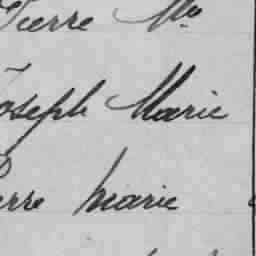 Pierre Mie
Joseph Marie
Pierre marie